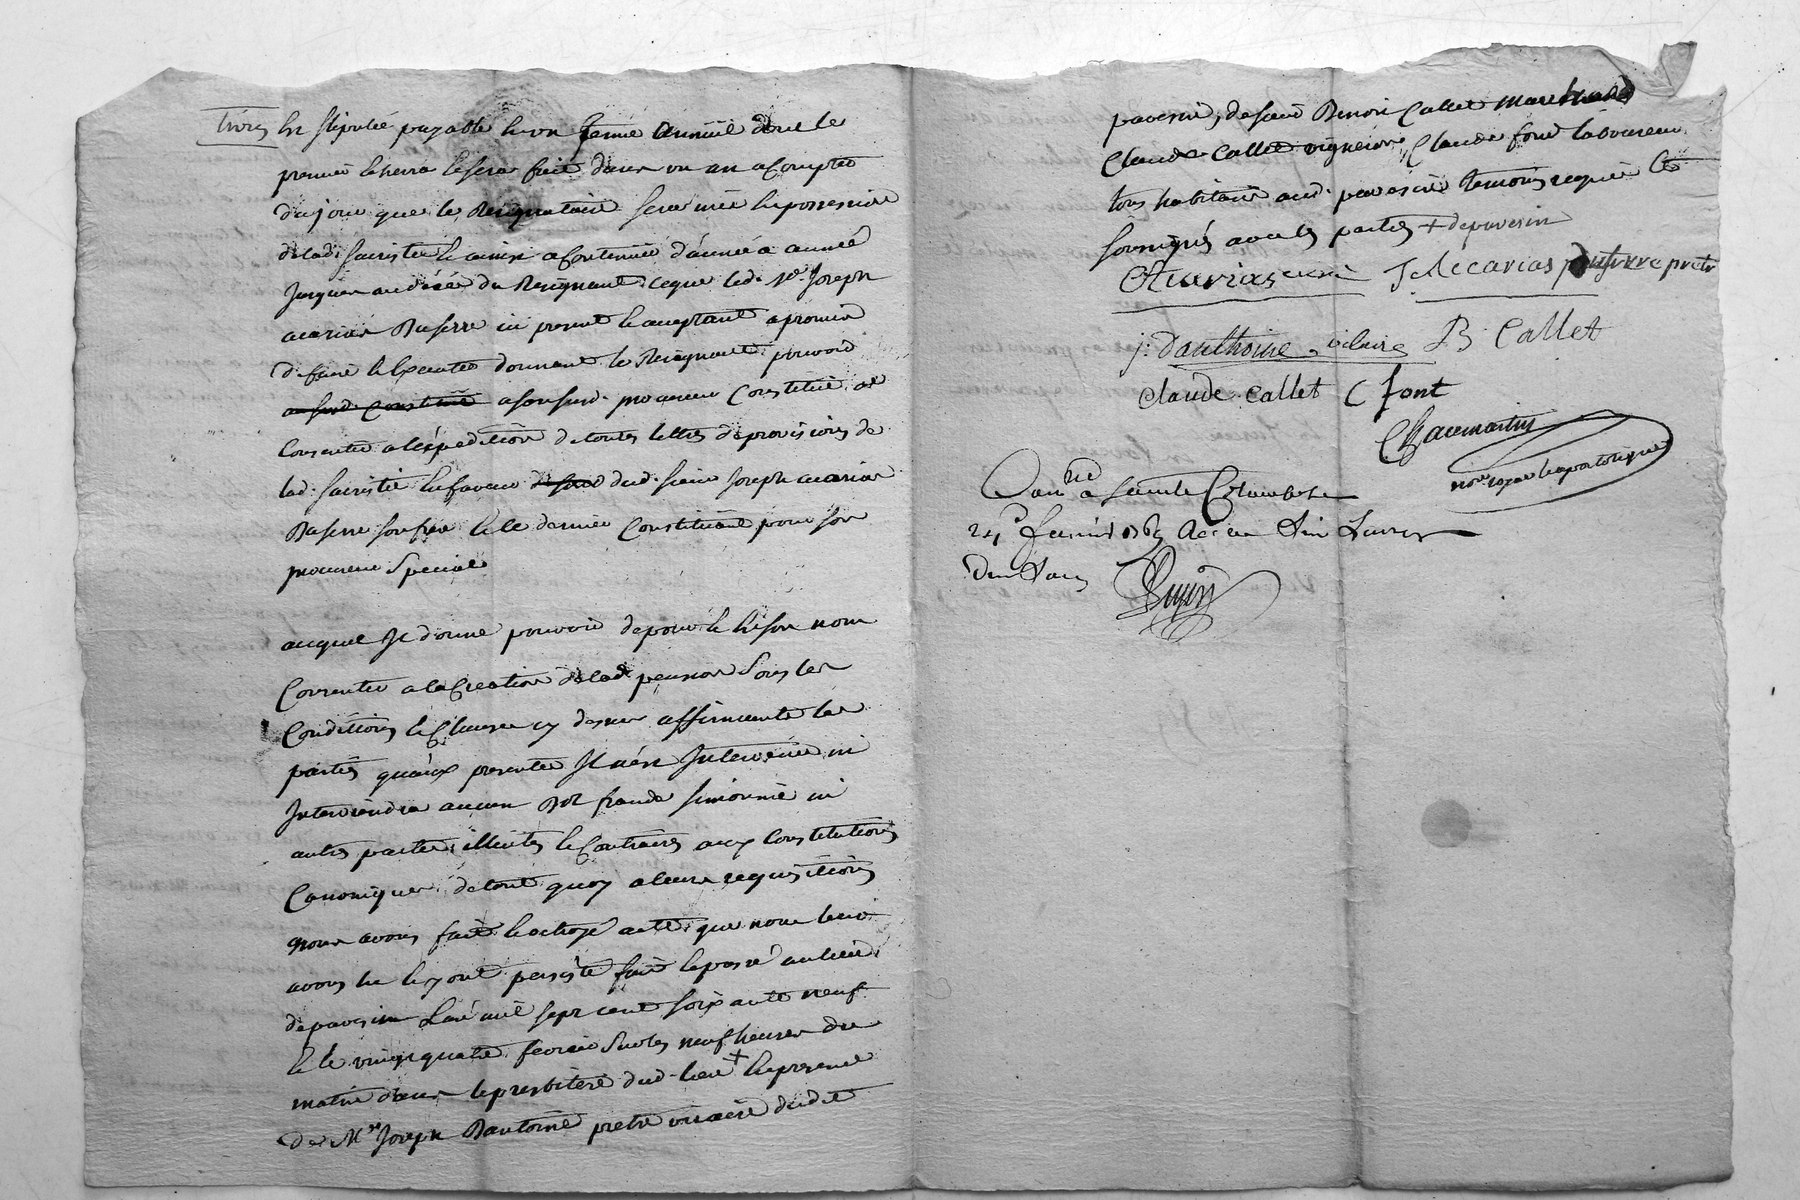 livres et stipulée payable en un terme annuel dont le
premier et sera fait dans un an a compter
du jour que le Resignataire sera mis en possession
de lad. sacristie et ainsi a continuer d'année a année
jusques au décés du Resignant, ce que led. Sr. Joseph
acarias Duserre ici present et acceptant a promis
de faire et executer donnant le Resignant pouvoir
a son susd. procureur constitué de
consentir a l'éxpedition de toutes lettres de provisions de
lad. sacristie en faveur dud. sieur Joseph acarias
Duserre son frere et ce dernier constituant pour son
procureur special
auquel il donne pouvoir de pour et en son nom
consentir a la Creation de lad. pension sous les
conditions et clauses cy dessus affirmants les
parties qu'aux presentes Il n'ést Intervenu ni
Interviendra aucun Dol fraude simonnie ni
autres pactes illicites et contraires aux constitutions
Canoniques, de tout quoy a leurs requisitions
nous avons fait et octroyé acte, que nous leur
avons lu et y ont persisté fait et passé au lieu
de pavesin L'an mil sept cent soixante neuf
et le vingt quatre fevrier sur les neuf heures du
matin dans le presbitere dud. lieu + en presence
de Mre Joseph Dantoine pretre vicaire dudit
pavesin, de sieur Benoit Callet marchand
Claude Callet vigneron, Claude font laboureur
tous habitans aud. pavesin temoins requis et
soussignés avec les parties + de pavesin
Acarias curé J Acarias duserre pretre
j. Danthoine vicaire B Callet
Claude Callet C font
Chacmartin
nore royal et apostolique
Con.lé a sainte Colombe le
24e fevrier 1769 Reçu